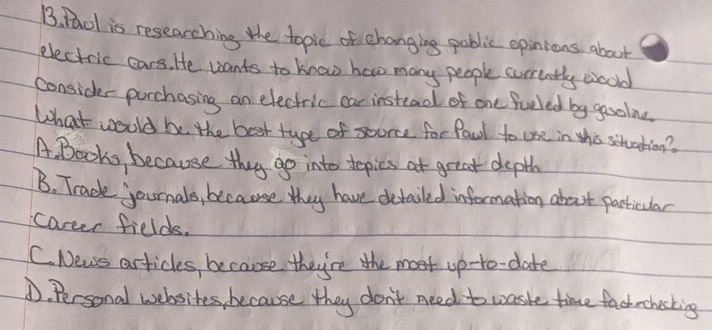 13. Paul is researching the topic of changing public opinions about
electric cars. He wants to know how many people currently would
consider purchasing an electric car instead of one fueled by gasoline.
What would be the best type of source for Paul to use in this situation?
A. Books, because they go into topics at great depth
B. Trade journals, because they have detailed information about particular
career fields.
C. News articles, because they're the most up-to-date
D. Personal websites, because they don't need to waste time fact-checking